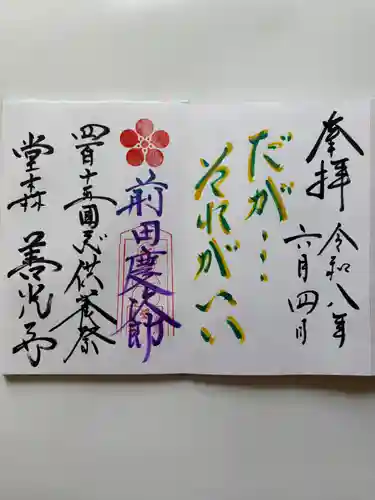 奉拝
令和八年
六月四日
だが…
それがいい
前田慶次郎
四百十五回忌供養祭
堂森 善光寺